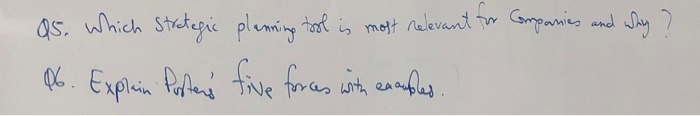 Q5. Which Strategic planning tool is most relevant for Companies and Why ?
Q6. Explain Porter's five forces with examples.